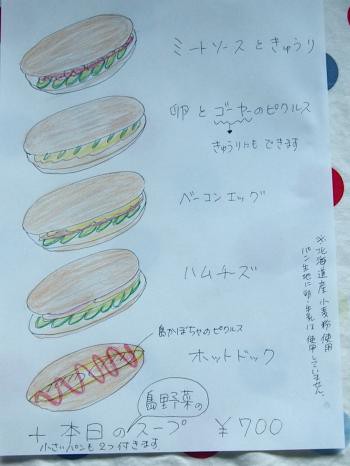 ミートソースときゅうり
卵とゴーヤーのピクルス
きゅうりにもできます
ベーコンエッグ
ハムチーズ
島かぼちゃのピクルス
ホットドック
島野菜の
+ 本日のスープ ¥700
小さいパンも2つ付きます
※北海道産小麦粉使用
パン生地に卵・牛乳は使用していません。